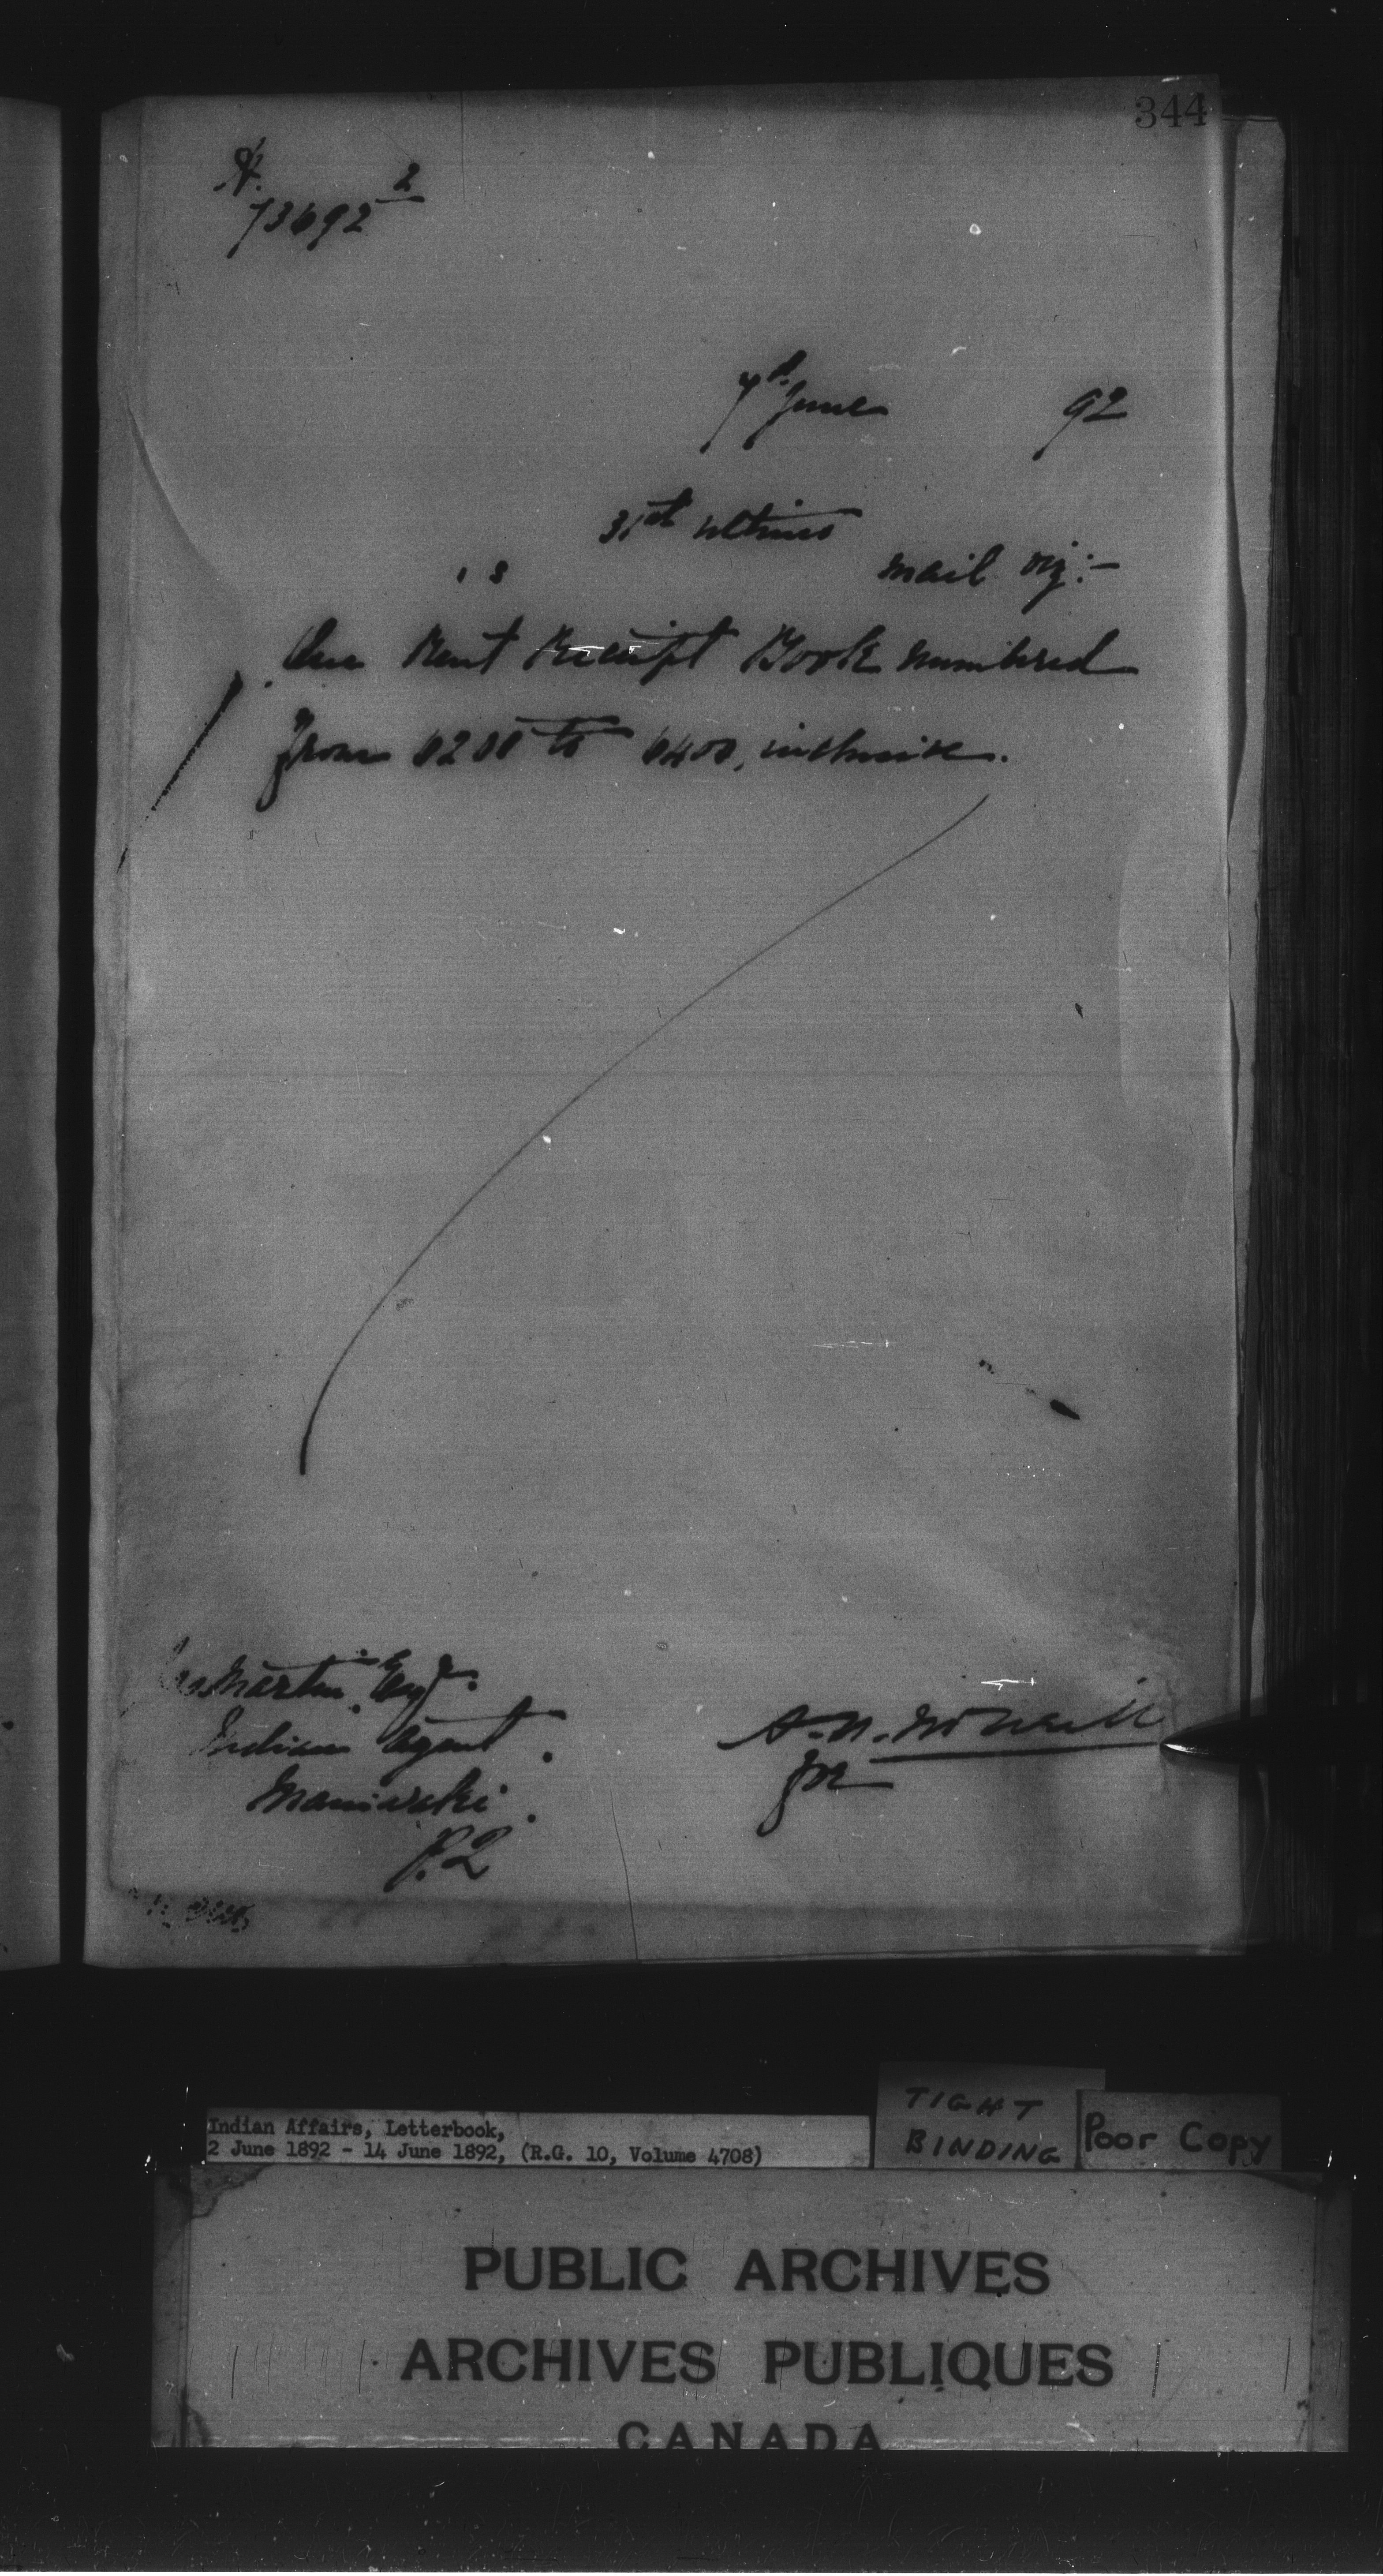 344
A.
73692 2
7th June 92
31st ultimo
mail viz:-
1. One Rent Receipt Book numbered
from 6201 to 6400, inclusive.
Jas Martin Esq.
Indian Agent.
Maniwaki.
P.Q
A.N. McNeill
for
Indian Affairs, Letterbook,
2 June 1892 - 14 June 1892, (R.G. 10, Volume 4708)
TIGHT
BINDING
Poor Copy
PUBLIC ARCHIVES
ARCHIVES PUBLIQUES
CANADA